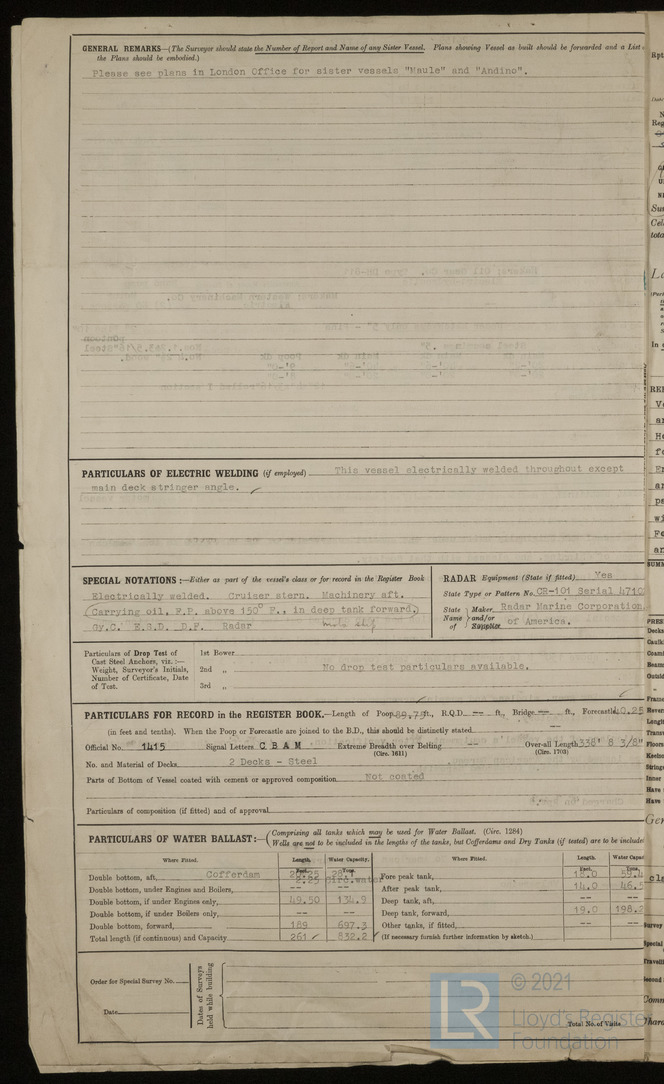 GENERAL REMARKS—(The Surveyor should state the Number of Report and Name of any Sister Vessel. Plans showing Vessel as built should be forwarded and a List
the Plans should be embodied.)
Please see plans in London Office for sister vessels "Maule" and "Andino".
PARTICULARS OF ELECTRIC WELDING (if employed) This vessel electrically welded throughout except
main deck stringer angle.
SPECIAL NOTATIONS :—Either as part of the vessel's class or for record in the Register Book
Electrically welded. Cruiser stern. Machinery aft.
(Carrying oil, F.P. above 150° F., in deep tank forward,)
Gy.C. E.S.D. D.F. Radar
RADAR Equipment (State if fitted) Yes
State Type or Pattern No. CR-101 Serial 4710
State Name of Maker and/or Supplier Radar Marine Corporation
of America.
Particulars of Drop Test of
Cast Steel Anchors, viz.:—
Weight, Surveyor's Initials,
Number of Certificate, Date
of Test.
1st Bower
2nd „ No drop test particulars available.
3rd „
PARTICULARS FOR RECORD in the REGISTER BOOK.—Length of Poop 89.75 ft., R.Q.D. — ft., Bridge — ft., Forecastle 40.25
(in feet and tenths). When the Poop or Forecastle are joined to the B.D., this should be distinctly stated
Official No. 1415 Signal Letters C B A M Extreme Breadth over Belting -- Over-all Length 338' 8 3/8"
(Circ. 1611) (Circ. 1703)
No. and Material of Decks 2 Decks - Steel
Parts of Bottom of Vessel coated with cement or approved composition Not coated
Particulars of composition (if fitted) and of approval
PARTICULARS OF WATER BALLAST:— (Comprising all tanks which may be used for Water Ballast. (Circ. 1284)
Wells are not to be included in the lengths of the tanks, but Cofferdams and Dry Tanks (if tested) are to be include
Where Fitted. Length. Water Capacity. Where Fitted. Length. Water Capac
Feet. Tons. Feet. Tons.
Double bottom, aft, Cofferdam Fore peak tank, 18.0
Double bottom, under Engines and Boilers, -- -- After peak tank, 14.0 46.5
Double bottom, if under Engines only, 49.50 134.9 Deep tank, aft, -- --
Double bottom, if under Boilers only, -- -- Deep tank, forward, 19.0 198.2
Double bottom, forward, 189 697.3 Other tanks, if fitted, -- --
Total length (if continuous) and Capacity 261 832.2 (If necessary furnish further information by sketch.)
Order for Special Survey No.
Date
Dates of Surveys
held while building
Total No. of Visits
LR
© 2021
Lloyd's Registe
Foundation